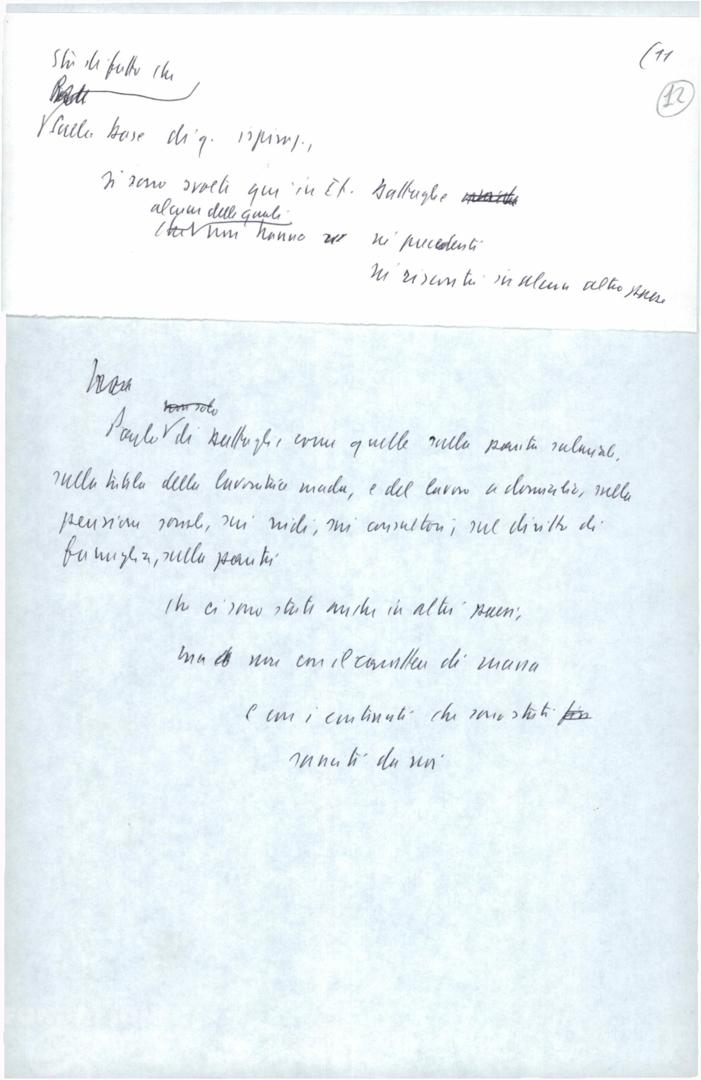 (11
12
Sta di fatto che
Sulla base di q. ispiraz.,
si sono svolte qui in It. battaglie
alcune delle quali
non hanno né precedenti
né riscontri in alcun altro paese
Parlo di battaglie come quelle sulla parità salariale,
sulla tutela della lavoratrice madre, e del lavoro a domicilio, sulla
pensione sociale, sui nidi, sui consultori, sul diritto di
famiglia, sulla parità
che ci sono state anche in altri paesi,
ma non con il carattere di massa
e con i contenuti che sono stati
da noi